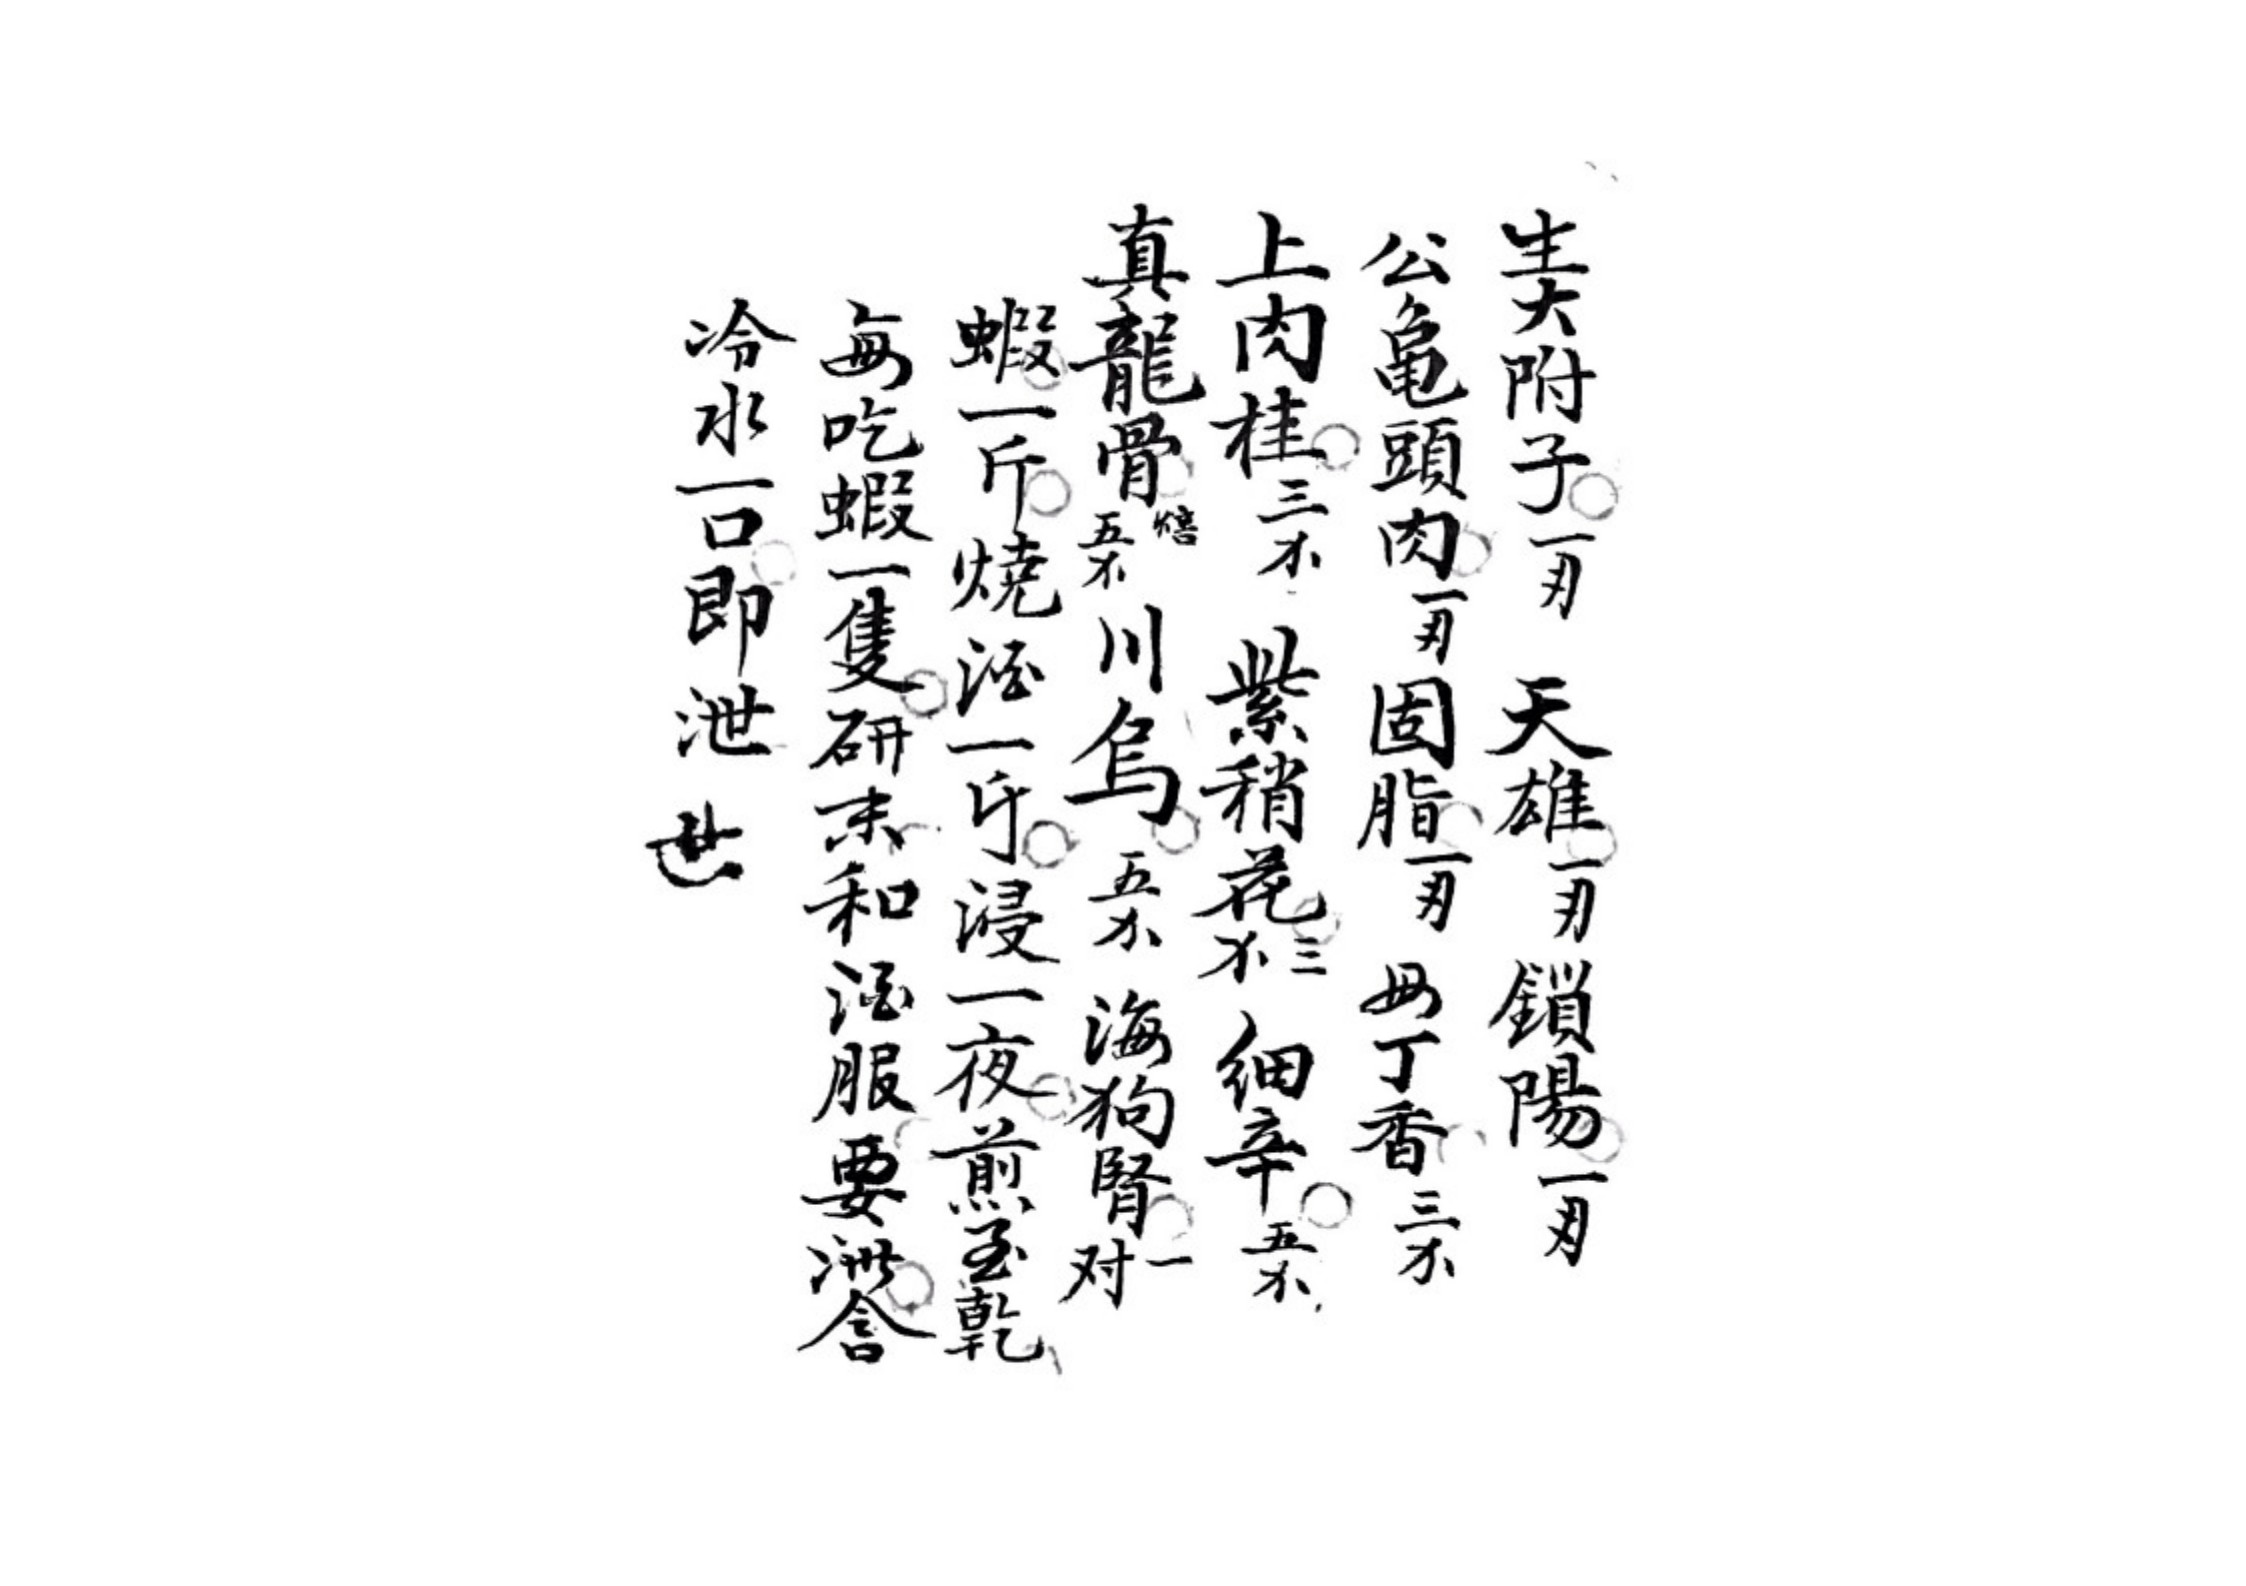 生大附子一刄 天雄一刄 鎖陽一刄
公亀頭肉一刄 固脂一刄 毋丁香三不
上肉桂三不 紫稍花三不 細辛五不
真龍骨焙五不 川烏五不 海狗腎一对
蝦一斤燒酒一斤浸一夜煎至乾
每吃蝦一隻研末和酒服要泄含
冷水一口即泄